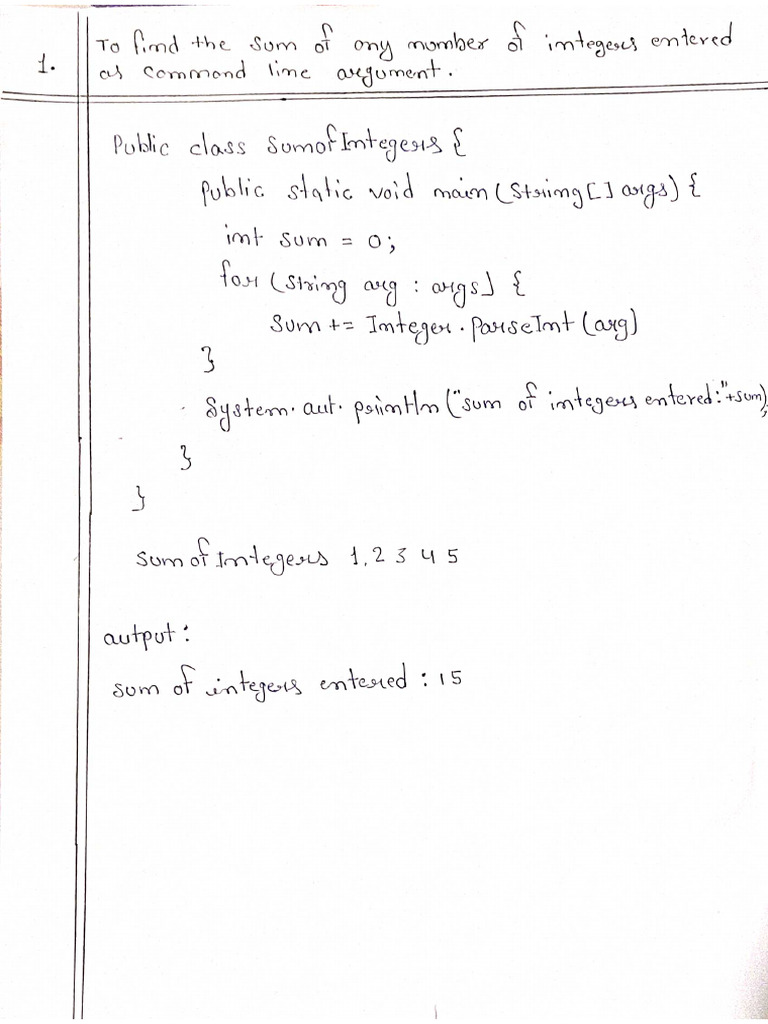 1.
To find the sum of any number of integers entered
as command line argument.
Public class SumofIntegers {
Public static void main (String [] args) {
int sum = 0;
for (String arg : args) {
Sum += Integer.ParseInt (arg)
}
System.out.println ("sum of integers entered:"+sum);
}
}
Sum of Integers 1,2 3 4 5
output:
sum of integers entered : 15